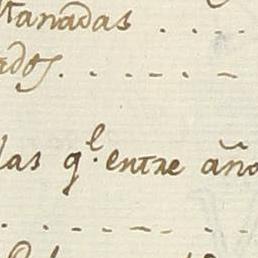 tanadas . . . .
ados . . . - . -
las q.l entre año
. . . . - . - . .